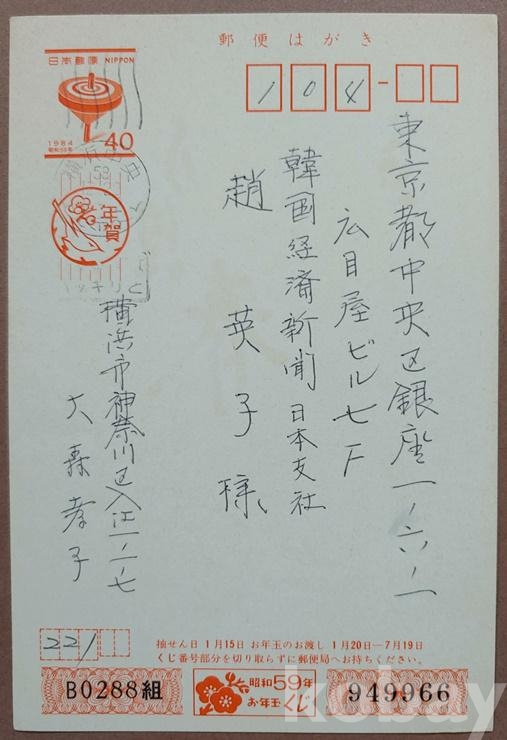 郵便はがき
日本郵便 NIPPON
1984
昭和59年
40
年賀
104
東京都中央区銀座一ノ六ノ一
広目屋ビル七F
韓国経済新聞 日本支社
趙英子様
横浜市神奈川区入江一ノ一ノ七
大森孝子
221
抽せん日 1月15日 お年玉のお渡し 1月20日―7月19日
くじ番号部分を切り取らずに郵便局へお持ちください。
B0288組
昭和59年
お年玉くじ
949966
kobay